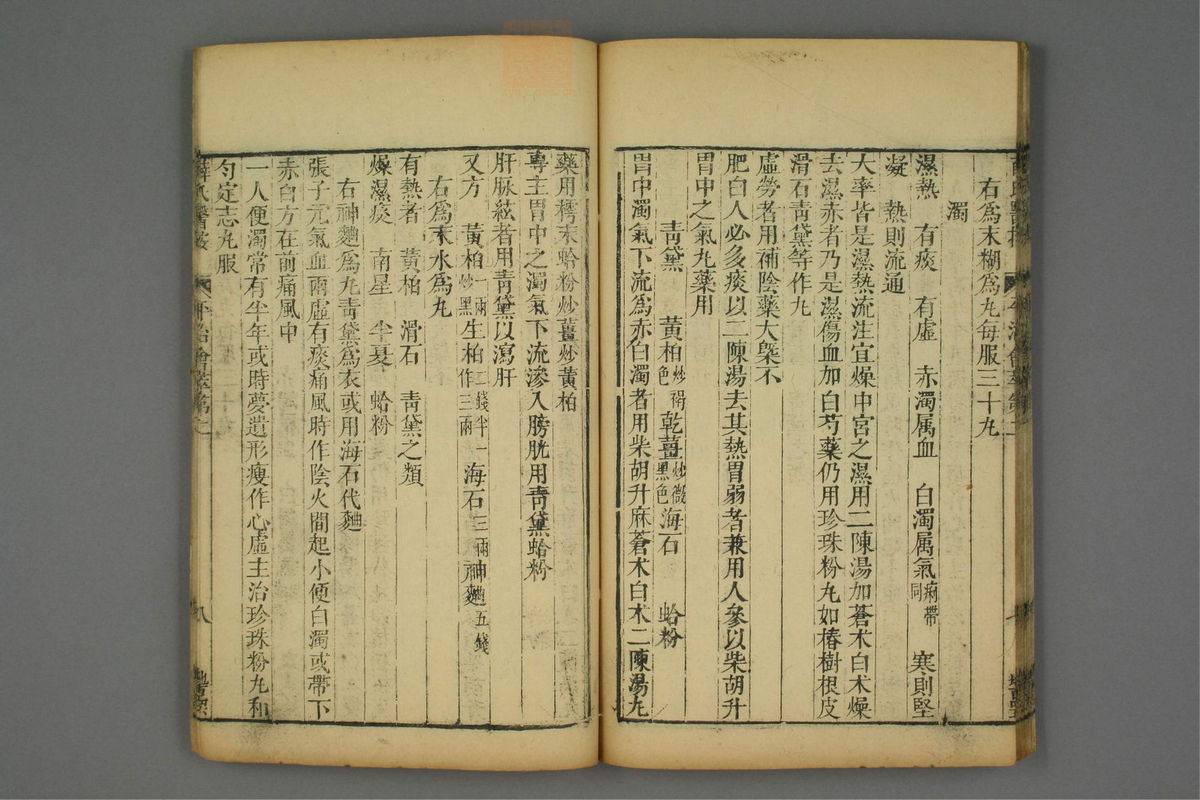 右爲末糊爲丸每服三十丸
濁
濕熱　有痰　有虛　赤濁属血　白濁属氣痢帶同　寒則堅
凝　熱則流通
大率皆是濕熱流注宜燥中宮之濕用二陳湯加蒼术白术燥
去濕赤者乃是濕傷血加白芍藥仍用珍珠粉丸如椿樹根皮
滑石靑黛等作丸
虛勞者用補陰藥大槩不
肥白人必多痰以二陳湯去其熱胃弱者兼用人參以柴胡升
胃中之氣丸藥用
靑黛　黃柏炒褐色乾薑炒微黑色海石　蛤粉
胃中濁氣下流爲赤白濁者用柴胡升麻蒼术白术二陳湯丸
藥用樗末蛤粉炒薑炒黃柏
專主胃中之濁氣下流滲入膀胱用靑黛蛤粉
肝脉絃者用靑黛以瀉肝
又方　黃柏一兩炒黑生柏二錢半一作三兩海石三兩神麯五錢
右爲末水爲丸
有熱者　黃柏　滑石　靑黛之類
燥濕痰　南星　半夏　蛤粉
右神麯爲丸靑黛爲衣或用海石代麯
張子元氣血兩虛有痰痛風時作陰火間起小便白濁或帶下
赤白方在前痛風中
一人便濁常有半年或時夢遺形瘦作心虛主治珍珠粉丸和
匀定志丸服